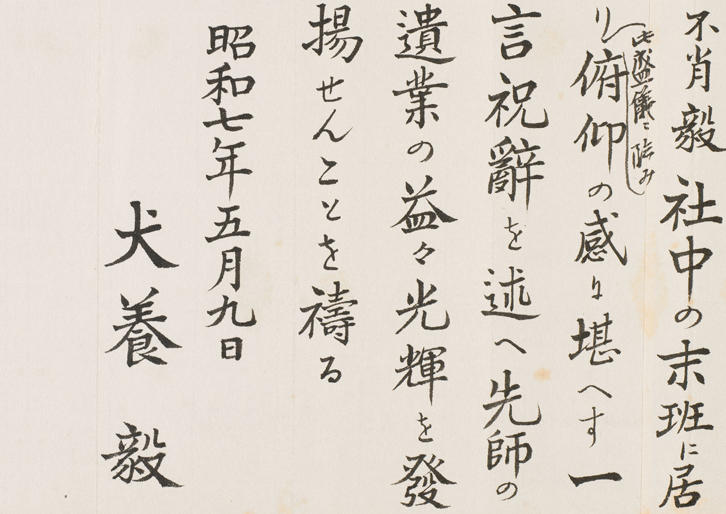 不肖毅社中の末班に居
り此盛儀ニ臨み俯仰の感に堪へす一
言祝辭を述へ先師の
遺業の益々光輝を發
揚せんことを禱る
昭和七年五月九日
犬養毅